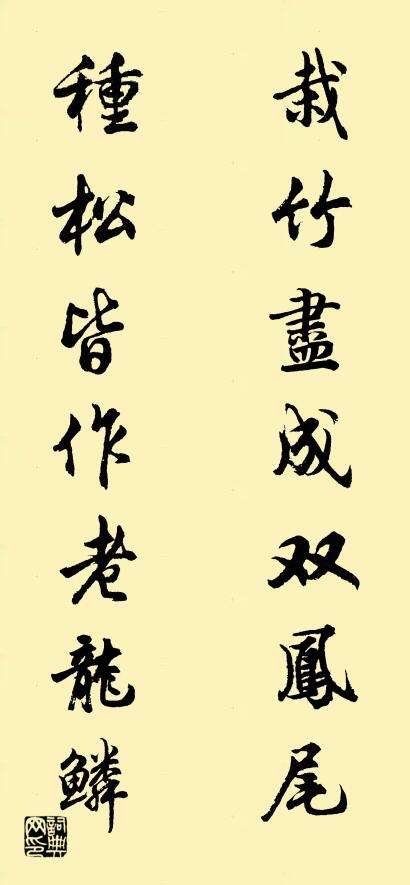 栽竹盡成双鳳尾
種松皆作老龍鱗
詞典网印